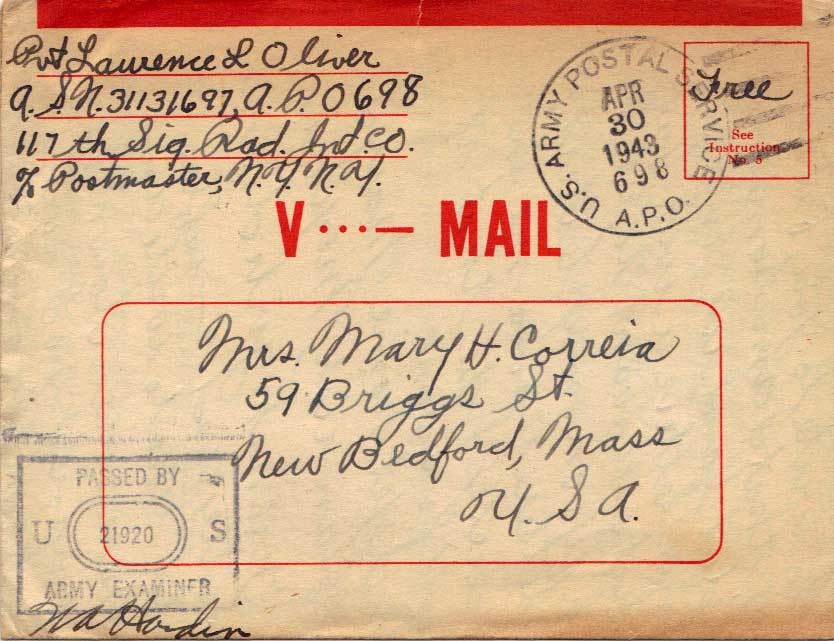 Pvt Laurence L Oliver
A.S.N. 31131697, A.P.O 698
117th Sig. Rad. Int. Co.
% Postmaster, N.Y. N.Y.
U.S. ARMY POSTAL SERVICE
APR
30
1943
698
A.P.O.
Free
See
Instruction
No. 5
V ···— MAIL
Mrs. Mary H. Correia
59 Briggs St.
New Bedford, Mass
U.S.A.
PASSED BY
U 21920 S
ARMY EXAMINER
Hardin